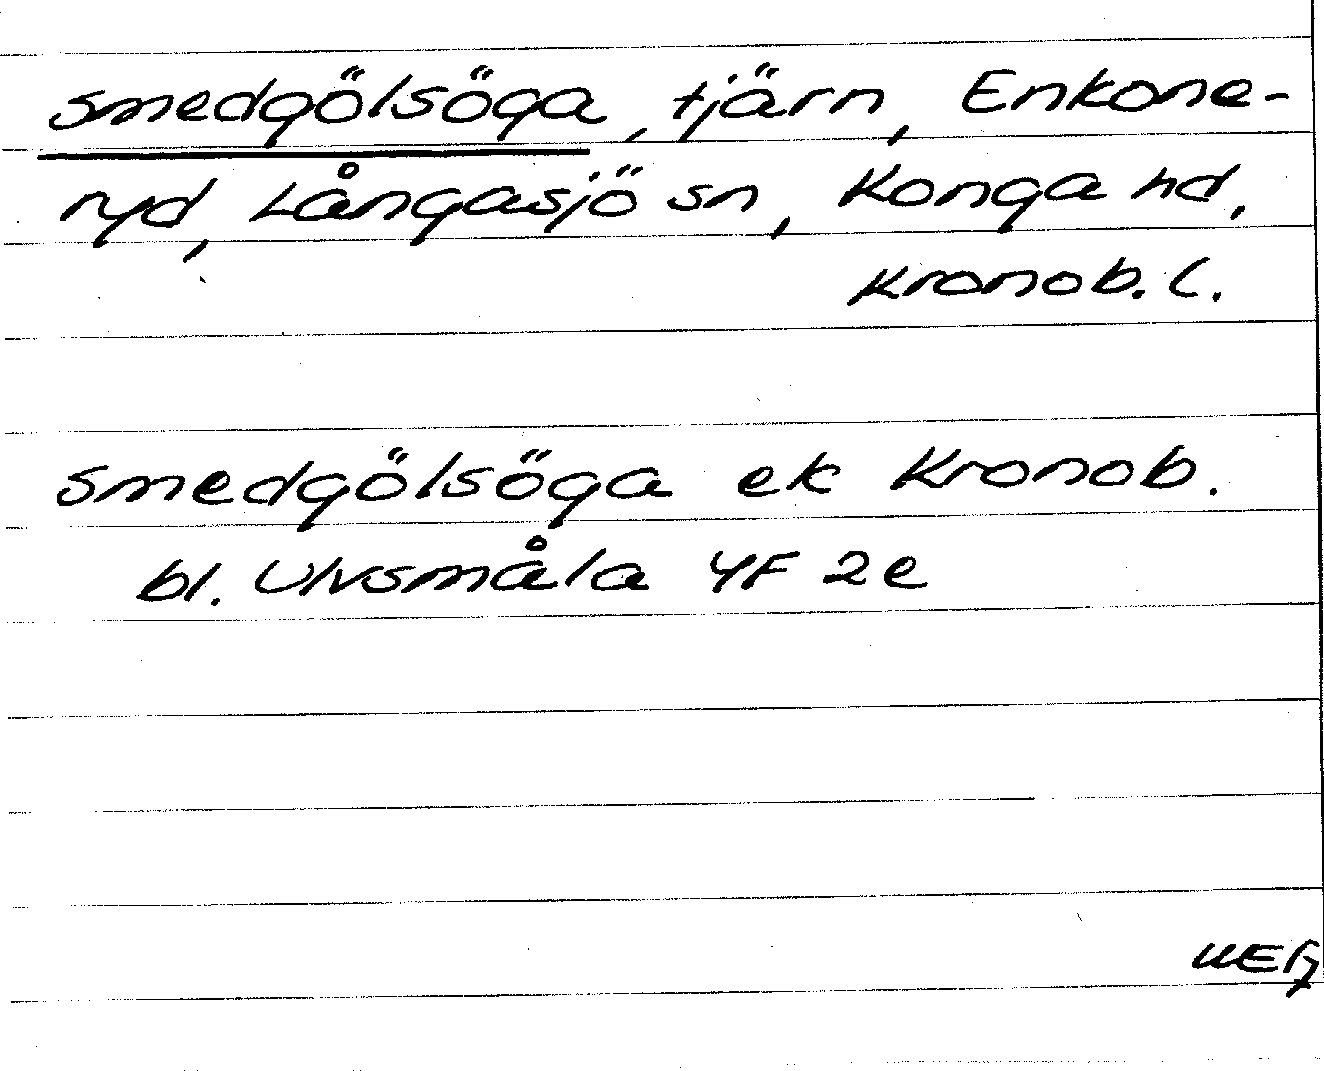 smedgölsöga, tjärn, Enkone-
ryd, Långasjö sn, Konga hd,
Kronob. l.
smedgölsöga ek Kronob.
bl. Ulvsmåla 4F 2e